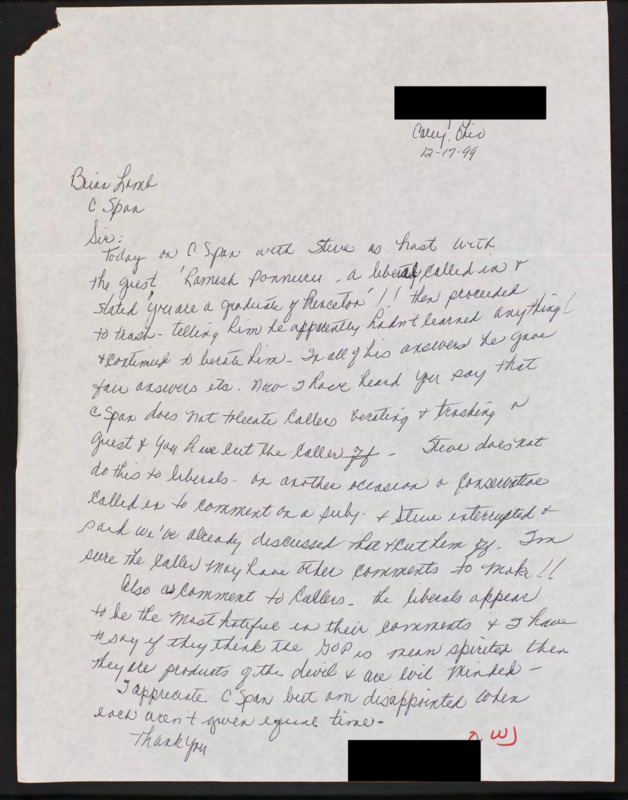 Carey, Ohio
12-17-99
Brian Lamb
C Span
Sir:
Today on C. Span with Steve as host with
the guest 'Ramesh Ponnuru - a liberal, called in &
stated 'you are a graduate of Princeton'!! then proceeded
to trash - telling him he apparently hadn't learned anything!
& continued to berate him - In all of his answers he gave
fair answers etc. Now I have heard you say that
C Span does not tolerate Callers berating & trashing a
guest & you have cut the caller off - Steve does not
do this to liberals - on another occasion a Conservative
called in to comment on a subj. & Steve interrupted &
said we've already discussed that & cut them off. I'm
sure the caller may have other comments to make!!
Also a comment to Callers - the liberals appear
to be the most hateful in their comments & I have
to say if they think the GOP is mean spirited then
they are products of the devil & are evil minded -
I appreciate C Span but am disappointed when
each aren't given equal time -
Thank you
WJ